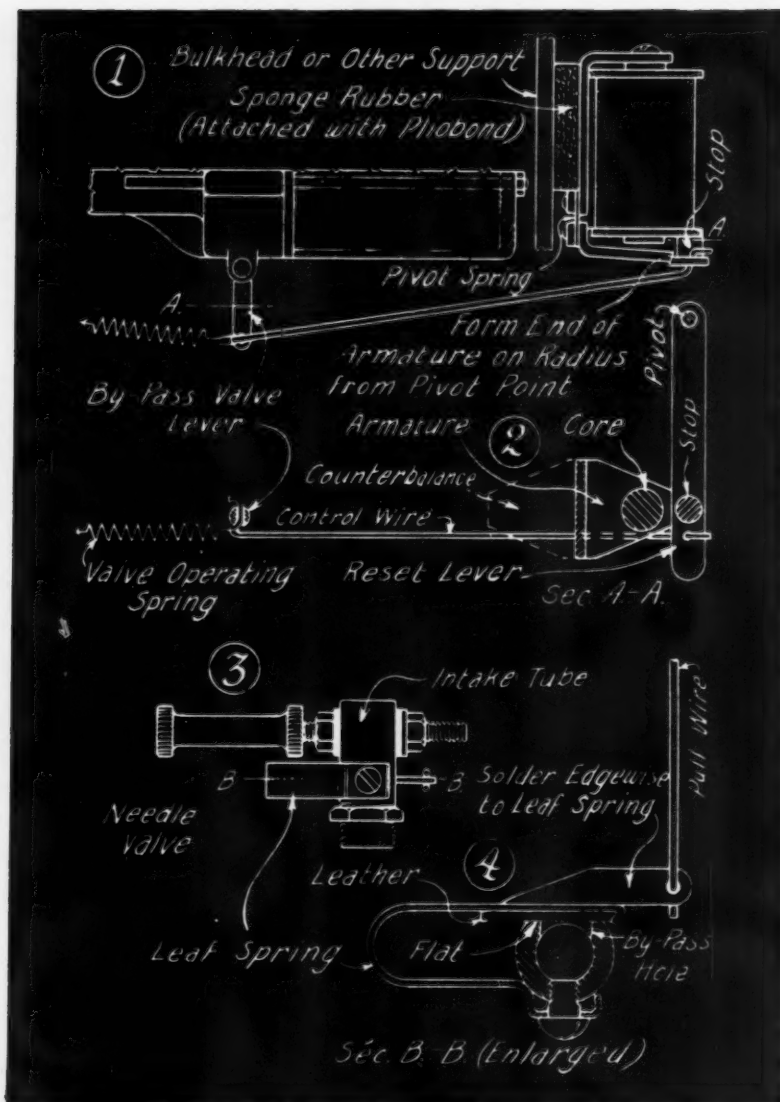 1
Bulkhead or Other Support
Sponge Rubber
(Attached with Pliobond)
Stop
A
Pivot Spring
A.
Form End of
Armature on Radius
from Pivot Point
Pivot
By-Pass Valve
Lever
Armature
2
Core
Stop
Counterbalance
Control Wire
Valve Operating
Spring
Reset Lever
Sec. A.-A.
3
Intake Tube
Pull Wire
B
B
Solder Edgewise
to Leaf Spring
Needle
Valve
4
Leather
Leaf Spring
Flat
By-Pass
Hole
Sec. B.-B. (Enlarged)